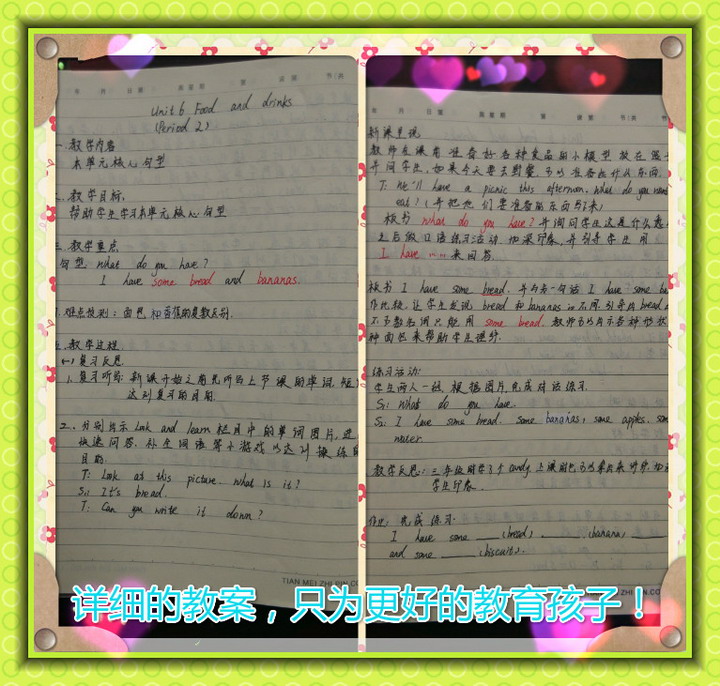 年 月 日 第 周 星期 第 课 节/共
Unit 6 Food and drinks
(Period 2)
一、教学内容
本单元核心句型
二、教学目标
帮助学生学习本单元核心句型
三、教学重点
句型 What do you have?
I have some bread and bananas.
难点预测：面包 和香蕉的复数区别.
教学过程
(一) 复习反馈
1. 复习听写: 新课开始之前先听写上节课的单词, 短
达到复习的目的.
2. 分别出示 Look and learn 栏目中的单词图片, 进
快速问答. 补全词语等小游戏以达到操练的
目的.
T: Look at this picture. What is it?
S1: It's bread.
T: Can you write it down?
TIAN MEI ZHI PIN CO
新课呈现
教师在课前准备好各种食品的小模型放在篮
并问学生, 如果今天要去野餐, 可以准备些什么东西.
T: We'll have a picnic this afternoon. What do you want
eat? (并把他们要准备的东西写下来)
板书 What do you have? 并询问学生这是什么意
之后做口语练习活动. 加深印象, 并引导学生用
I have …… 来回答.
板书 I have some bread. 并与另一句话 I have some ba
作比较, 让学生发现 bread 和 bananas 的不同. 引导出 bread
不可数名词只能用 some bread. 教师可以出示各种形状
种面包来帮助学生理解.
练习活动:
学生两人一组, 根据图片完成对话练习.
S1: What do you have.
S2: I have some bread. some bananas, some apples. som
water.
教学反思: 三年级时学了 candy, 上课时也可以拿出来所学, 加深
学生印象.
作业: 完成练习.
I have some ______ (bread), ______ (banana), ___
and some ______ (biscuit).
详细的教案，只为更好的教育孩子！